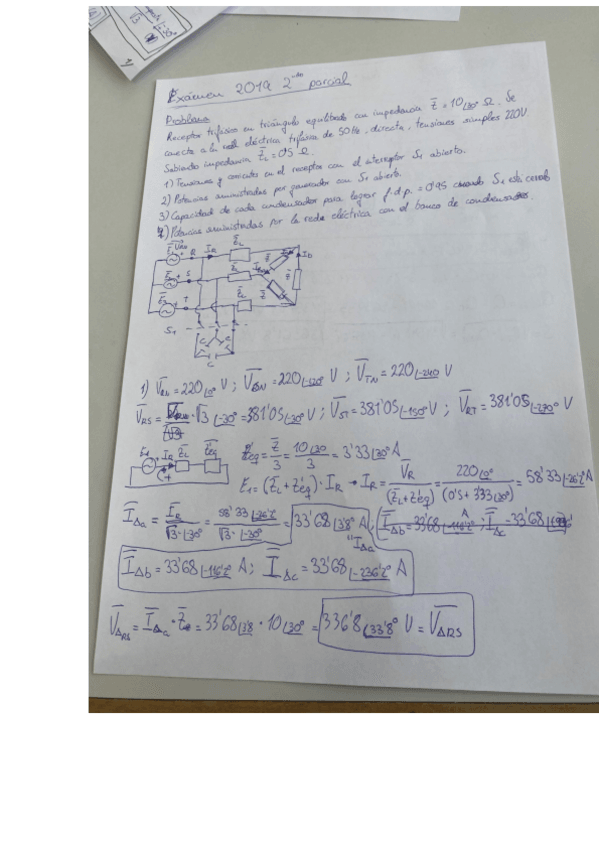 Exámen 2019 2ndo parcial
Problema
Receptor trifásico en triángulo equilibrado con impedancia Z̅ = 10∠30° Ω. Se
conecta a la red eléctrica trifásica de 50Hz, directa, tensiones simples 220V.
Sabiendo impedancia Z̅L = 0'5 Ω.
1) Tensiones y corrientes en el receptor con el interruptor S1 abierto.
2) Potencias suministradas por generador con S1 abierto.
3) Capacidad de cada condensador para lograr f.d.p. = 0'95 cuando S1 está cerrado
4) Potencias suministradas por la red eléctrica con el banco de condensadores.
R IR Z̅L
S Z̅L
T Z̅L
Z̅ Z̅ Z̅ Ib
S1
C C
C
1) V̅RN = 220∠0° V ; V̅SN = 220∠-120° V ; V̅TN = 220∠-240 V
V̅RS = √3 ∠-30° = 381'05∠-30° V ; V̅ST = 381'05∠-150° V ; V̅RT = 381'05∠-270° V
E1 IR Z̅L Z̅eq
Z̅eq = Z̅/3 = 10∠30/3 = 3'33∠30° A
E1 = (Z̅L + Z̅eq) · IR → IR = V̅R/(Z̅L + Z̅eq) = 220∠0°/(0'5 + 3'33∠30°) = 58'33∠-26'2° A
I̅Δa = I̅R/√3·∠-30° = 58'33∠-26'2°/√3·∠-30° = 33'68∠3'8° A ; I̅Δb = 33'68∠-116'2° A ; I̅Δc = 33'68
I̅Δa
I̅Δb = 33'68∠-116'2° A ; I̅Δc = 33'68∠-236'2° A
V̅ΔRS = I̅Δa · Z̅ = 33'68∠3'8 · 10∠30° = 336'8∠33'8° V = V̅ΔRS